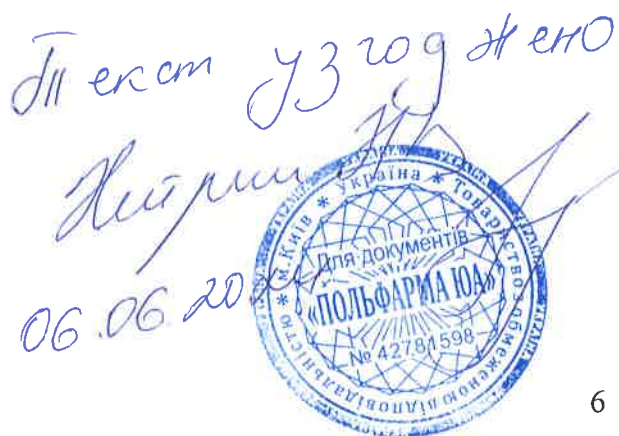 Текст узгоджено
06.06.20
Україна * Товариство з обмеженою відповідальністю * м. Київ *
Для документів
«ПОЛЬФАРМА ЮА»
№ 42781598
6